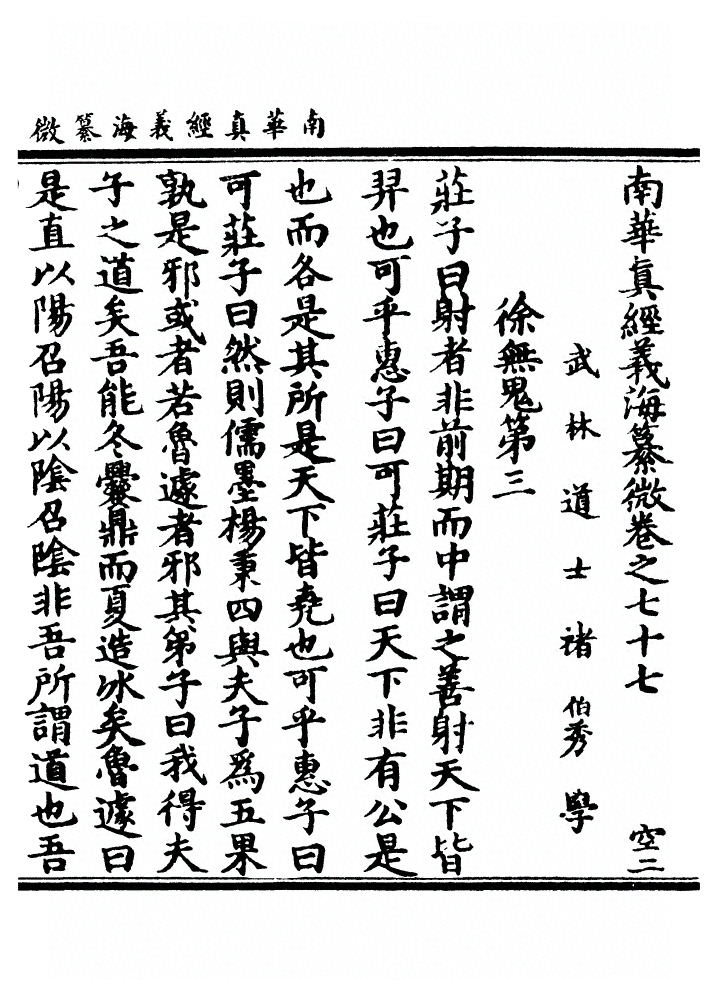 南華真經義海纂微
南華真經義海纂微卷之七十七 空二
武林道士褚伯秀學
徐無鬼第三
莊子曰射者非前期而中謂之善射天下皆
羿也可乎惠子曰可莊子曰天下非有公是
也而各是其所是天下皆堯也可乎惠子曰
可莊子曰然則儒墨楊秉四與夫子為五果
孰是邪或者若魯遽者邪其弟子曰我得夫
子之道矣吾能冬爨鼎而夏造冰矣魯遽曰
是直以陽召陽以陰召陰非吾所謂道也吾